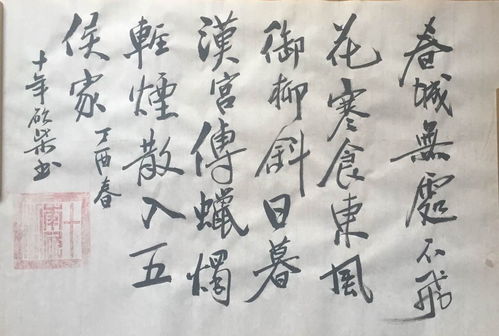 春城無處不飛
花寒食東風
御柳斜日暮
漢宮傳蠟燭
輕煙散入五
侯家
丁酉春
十年砍柴書